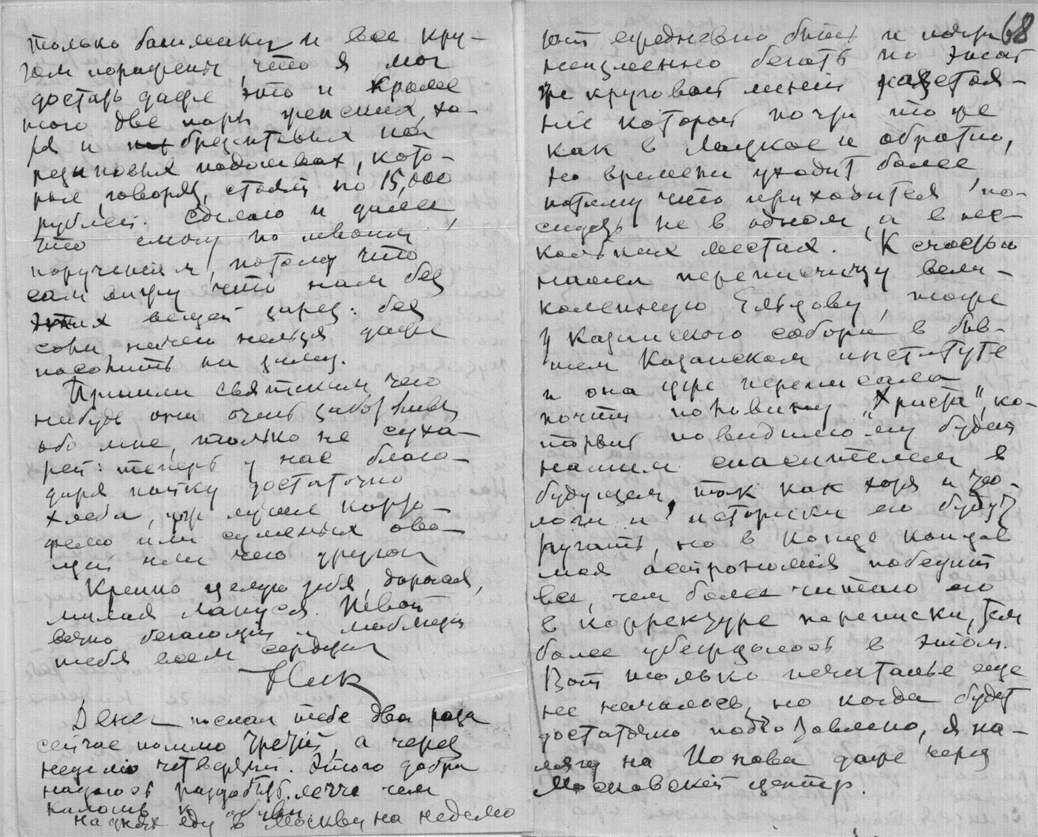 только башмаки и все кру-
гом поражены, что я мог
достать даже это и кроме
того две пары женских, хо-
тя и брезентовых на
резиновых подошвах, кото-
рые, говорят, стоят по 15,000
рублей. Сделаю и далее,
что смогу по твоим
поручениям, потому что
сам вижу что нам без
этих вещей зарез: без
соли ничего нельзя даже
посолить на зиму.
Пришли Святским чего
нибудь они очень заботливы
обо мне, только не суха-
рей: теперь у нас благо-
даря пайку достаточно
хлеба, уж лучше карто-
фелю или сушеных ово-
щей или чего другого
Крепко целую тебя, дорогая,
милая Твой
вечно бегающий и любящий
тебя всем сердцем
Ник
Денег послал тебе два раза
сейчас шлю третий, а через
неделю четвертый. Этого добра
надеюсь раздобыть легче чем
калош и обуви
На днях еду в Москву на неделю
68
ют ежедневно быть и почти
неизменно бегать по этой
же круговой линии, расстоя-
ние которой почти то же
как в Лицкое и обратно,
но времени уходит более,
потому что приходится по-
сидеть не в одном, а в нес-
кольких местах. К счастью
нашел переписчицу вели-
колепную тоже
у Казанского собора в быв-
шем Казанском инст-туте
и она уже переписала
почти половину "Христа", ко-
торый повидимому будет
нашим спасителем в
будущем, так как хотя и тео-
логи и историки его будут
ругать, но в конце концов
моя астрономия победит
все, чем более читаю его
в корректуре переписки, тем
более убеждаюсь в этом.
Вот только печатанье еще
не началось, но когда будет
достаточно подготовлено, я на-
лягу на Ионова даже через
Московский центр.